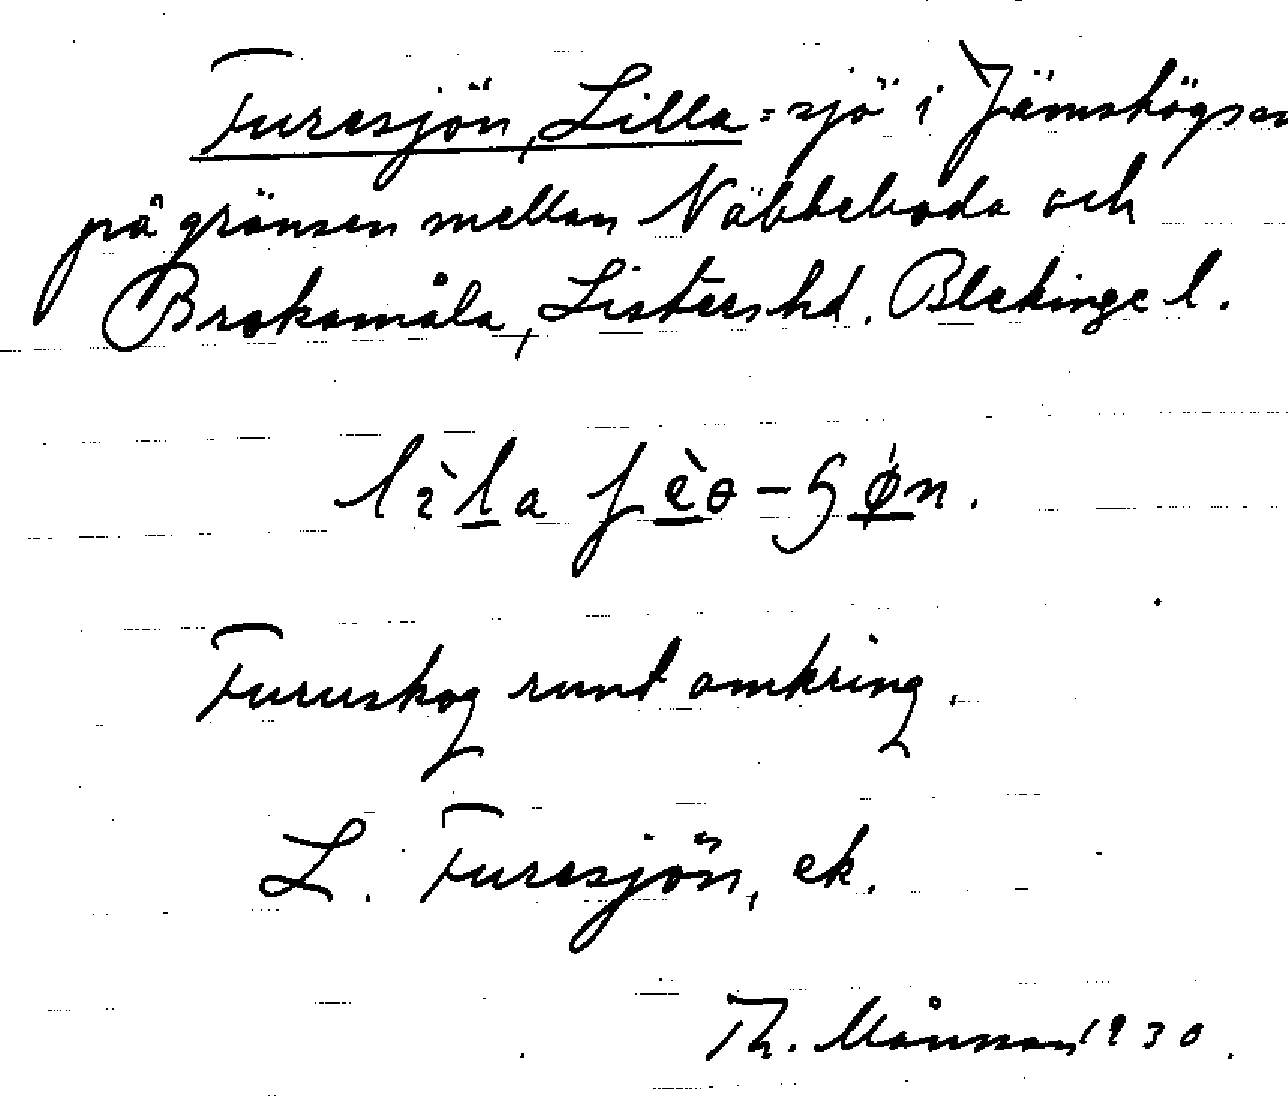 Furesjön, Lilla = sjö i Jämshögs sn
på gränsen mellan Näbbeboda och
Brokamåla, Listers hd. Blekinge l.
Furuskog runt omkring.
L. Furesjön, ek.
Th. Månsson 1930.